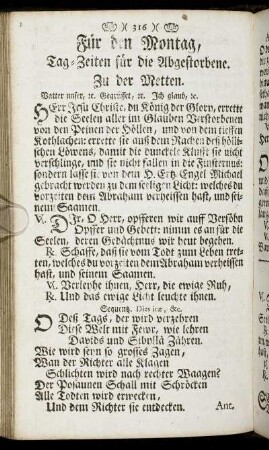 ( 316 )
Für den Montag,
Tag-Zeiten für die Abgestorbene.
Zu der Metten.
Vatter unser, ꝛc. Gegrüsset, ꝛc. Ich glaub, ꝛc.
HErr Jesu Christe, du König der Glory, errette
die Seelen aller im Glauben Verstorbenen
von den Peinen der Höllen, und von dem tieffen
Kothlachen: errette sie auß dem Rachen deß höllischen
Löwens, damit die dunckele Klufft sie nicht
verschlinge, und sie nicht fallen in die Finsternus:
sondern lasse sie von dem H. Ertz-Engel Michael
gebracht werden zu dem seeligen Licht: welches du
vorzeiten dem Abraham verheissen hast, und seinem
Saamen.
V. Dir, O Herr, opfferen wir auff Versöhn
Opffer und Gebett: nimm es an für die
Seelen, deren Gedächtnus wir heut begehen.
R. Schaffe, daß sie vom Todt zum Leben tretten,
welches du vorzeiten dem Abraham verheissen
hast, und seinem Saamen.
V. Verleyhe ihnen, Herr, die ewige Ruh,
R. Und das ewige Licht leuchte ihnen.
Sequentz. Dies iræ, &c.
O Deß Tags, der wird verzehren
Diese Welt mit Fewr, wie lehren
Davids und Sibyllä Zähren.
Wie wird seyn so grosses Zagen,
Wan der Richter alle Klagen
Schlichten wird nach rechter Waagen?
Der Posaunen Schall mit Schröcken
Alle Todten wird erwecken,
Und dem Richter sie entdecken.
Ant.